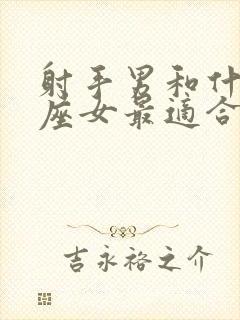 射手男和什
座女最適合
吉永裕之介